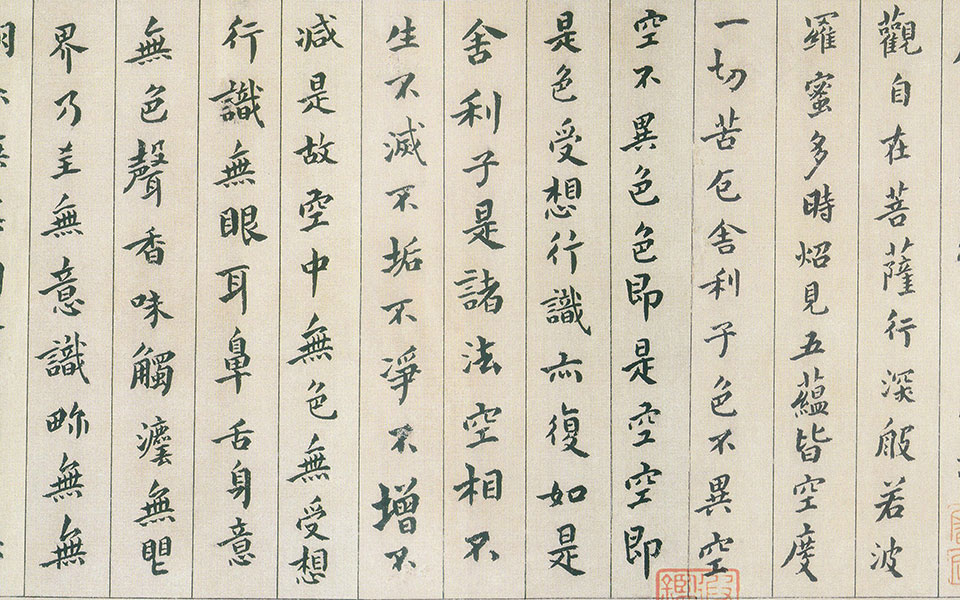 觀自在菩薩行深般若波
羅蜜多時炤見五蘊皆空度
一切苦厄舍利子色不異空
空不異色色即是空空即
是色受想行識亦復如是
舍利子是諸法空相不
生不滅不垢不淨不增不
減是故空中無色無受想
行識無眼耳鼻舌身意
無色聲香味觸灋無
界乃至無意識畍無無